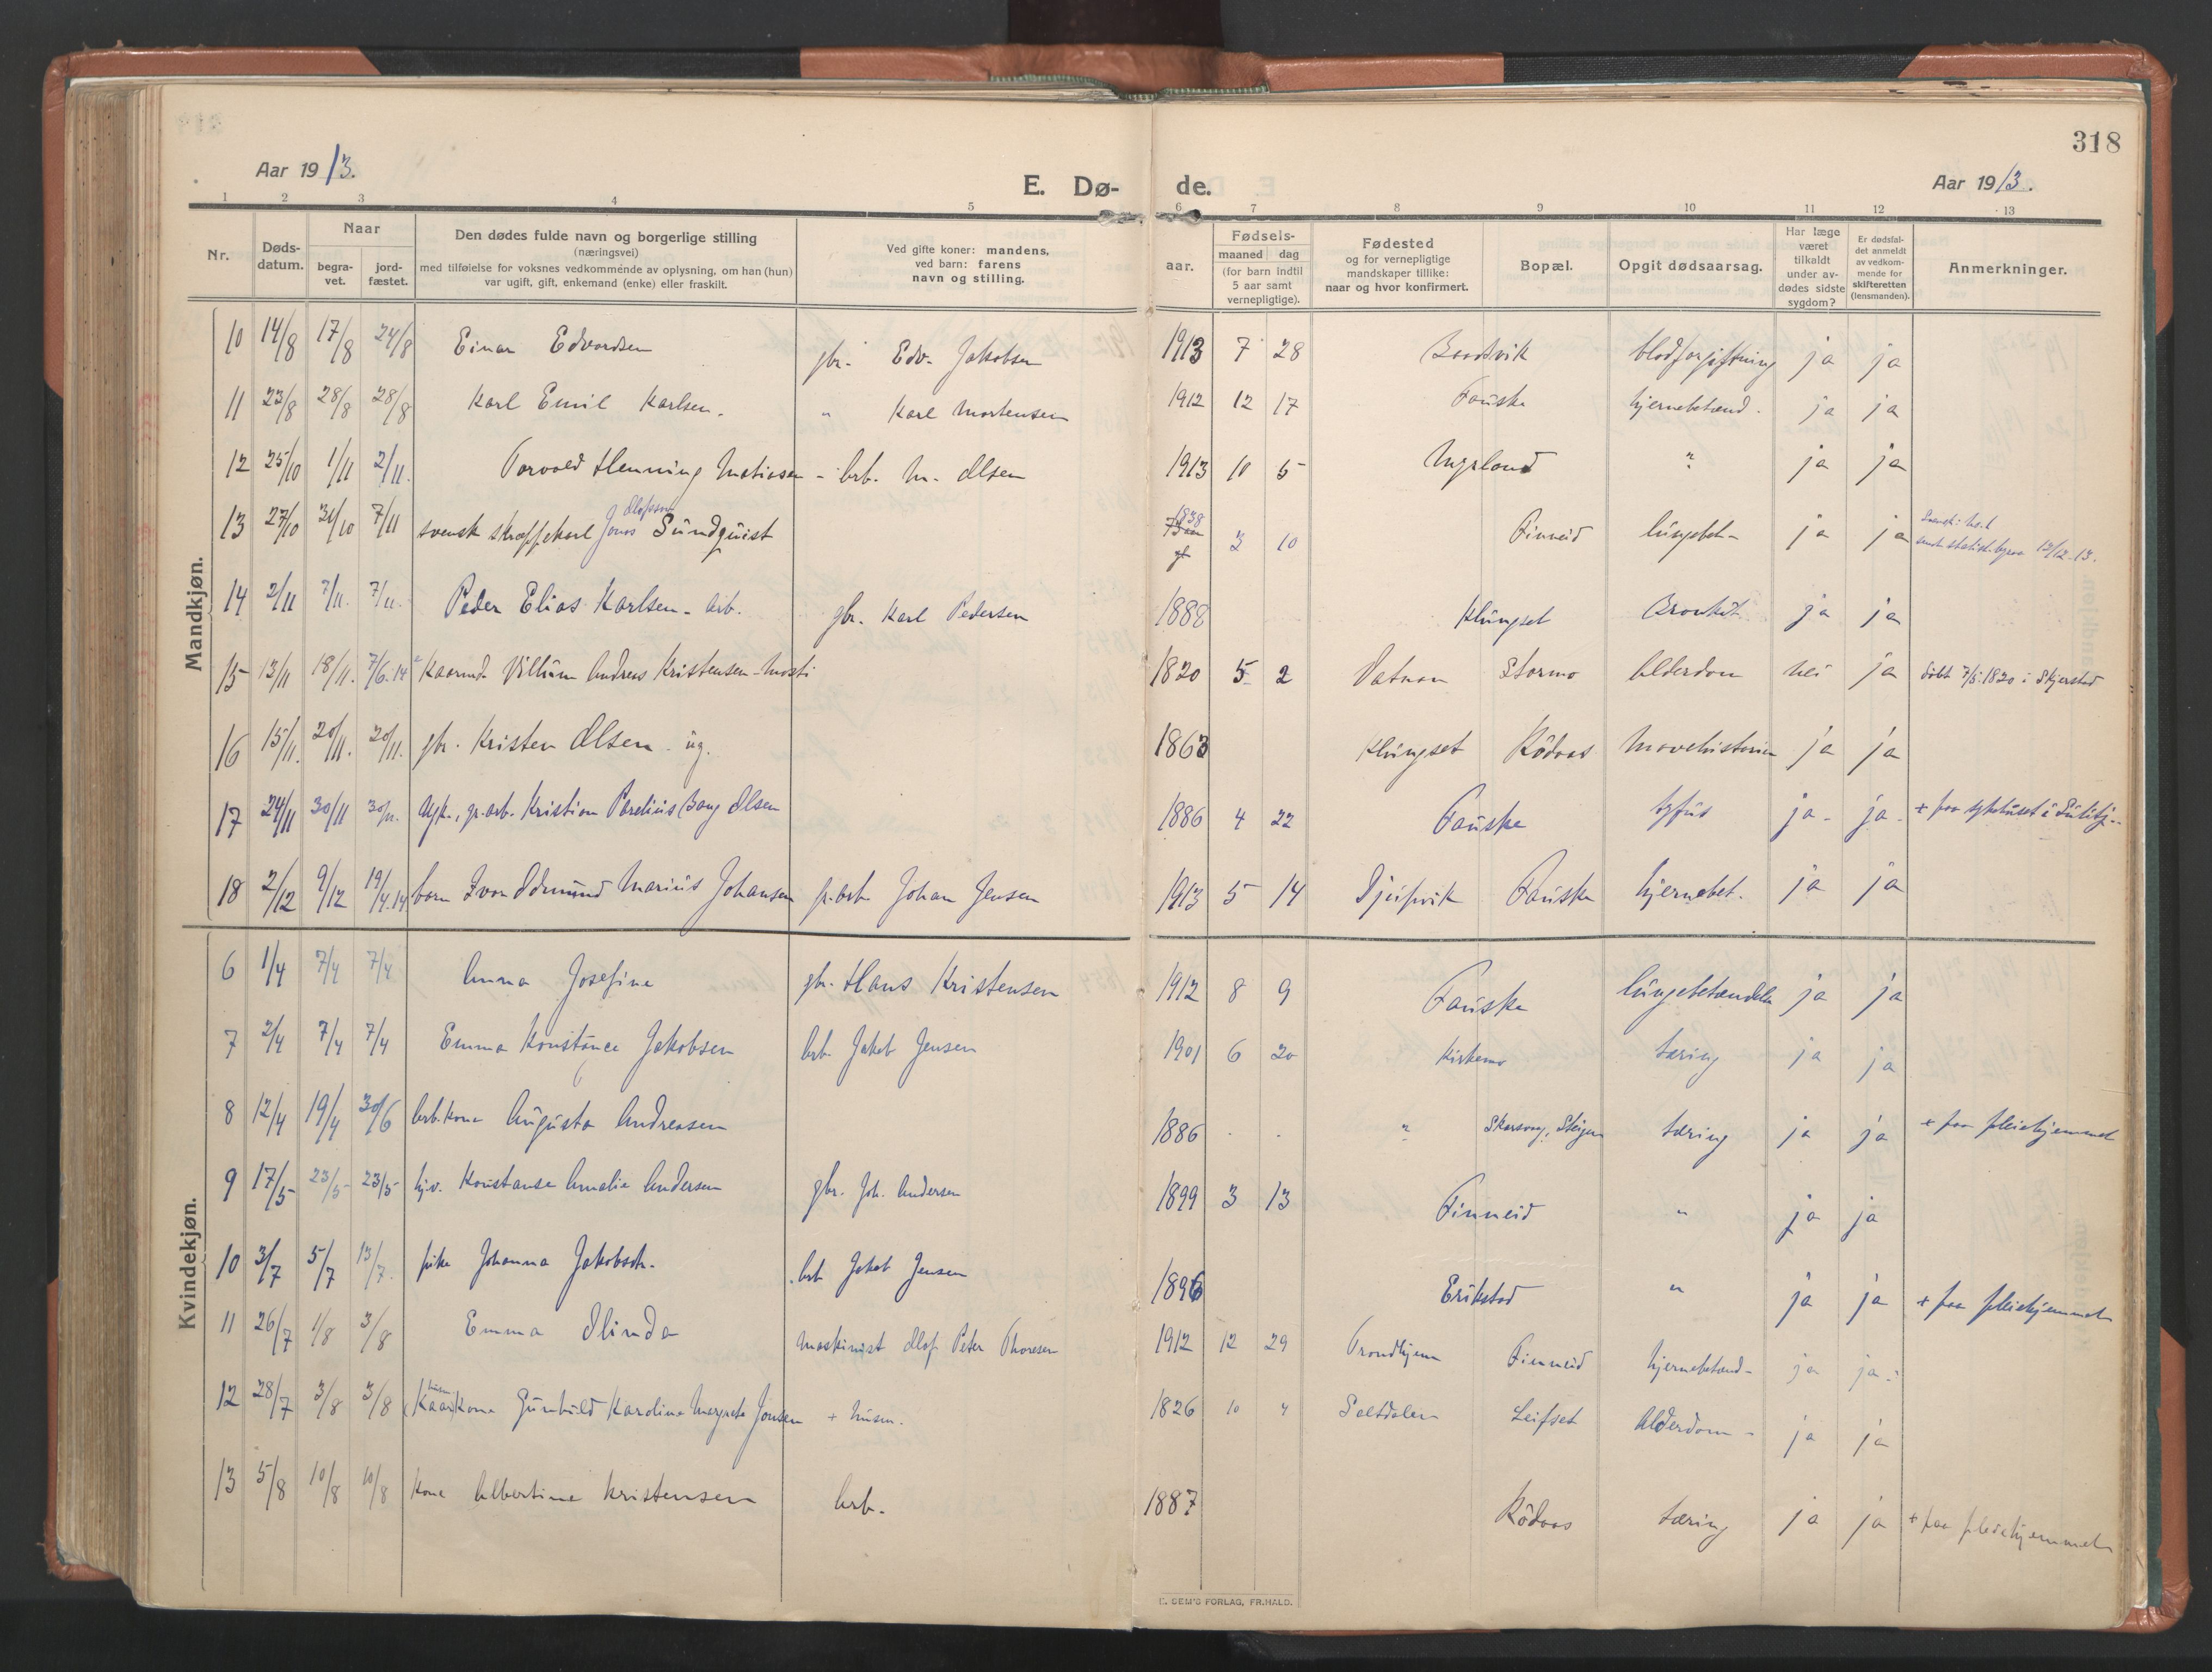 318
Aar 1913.
E. Dø-
de.
Aar 1913.
1 2 3 4 5 6 7 8 9 10 11 12 13
Nr.
Døds-
datum.
Naar
begra-
vet.
jord-
fæstet.
Den dødes fulde navn og borgerlige stilling
(næringsvei)
med tilføielse for voksnes vedkommende av oplysning, om han (hun)
var ugift, gift, enkemand (enke) eller fraskilt.
Ved gifte koner: mandens,
ved barn: farens
navn og stilling.
aar.
Fødsels-
maaned dag
(for barn indtil
5 aar samt
vernepligtige).
Fødested
og for vernepligtige
mandskaper tillike:
naar og hvor konfirmert.
Bopæl.
Opgit dødsaarsag.
Har læge
været
tilkaldt
under av-
dødes sidste
sygdom?
Er dødsfal-
det anmeldt
av vedkom-
mende for
skifteretten
(lensmanden).
Anmerkninger.
Mandkjøn.
10 14/8 17/8 24/8 Einar Edvardsen gbr. Edv. Jakobsen 1913 7 28 blodforgiftning ja ja
11 23/8 28/8 28/8 Karl Emil Karlsen. " Karl Mortensen 1912 12 17 Fauske hjernebetænd. ja ja
12 25/10 1/11 2/11. Torvald Henning Matiasen - arb. M. Olsen 1913 10 5 " ja ja
13 27/10 31/10 7/11 svensk skræppekarl Jonas Olofsson Sundquist 1838 3 10 Finneid lungebet- ja ja 12/12.13.
14 2/11 7/11. 7/11. Peder Elias Karlsen - arb. gbr. Karl Pedersen 1888 Klungset Bronkit ja ja
15 13/11 18/11. 7/6.14 Kaarmd. Villium Andreas Kristensen-Mosti 1820 5 2 Vatnan Stormo Alderdom nei ja døbt 7/5.1820 i Skjerstad
16 15/11. 20/11. 20/11. gbr. Kristen Olsen. ug. 1863 Klungset Rödaas Mavehistorien ja ja
17 24/11 30/11 30/11. ugk., gr.arb. Kristian Parelius Bang Olsen 1886 4 22 Fauske tyfus ja - ja - + paa sykehuset i Sulitj.-
18 2/12 9/12 19/4.14 barn Ivar Odmund Marius Johansen gr.arb. Johan Jensen 1913 5 14 Djupvik Fauske hjernebet. ja ja
Kvindekjøn.
6 1/4 7/4 7/4 Anna Josefine gbr. Hans Kristensen 1912 8 9 Fauske lungebetændelse ja ja
7 2/4 7/4 7/4 Emma Konstance Jakobsen arb. Jakob Jensen 1901 6 20 Kirkemo tæring ja ja
8 12/4 19/4 30/6 Arb.kone Augusta Andreasen 1886 " Skarsvag, Steigen tæring ja ja + paa pleiehjemmet
9 17/5 23/5 23/5 hj.v. Konstanse Amalie Andersen gbr. Joh. Andersen 1899 3 13 Finneid " ja ja
10 3/7 5/7 13/7. pike Johanna Jakobsdr. arb. Jakob Jensen 1896 Erikstad " ja ja + paa pleiehjemmet
11 26/7 1/8 3/8 Emma Olinda Maskinist Olof Peter Thoresen 1912 12 29 Trondhjem Finneid hjernebetænd- ja ja.
12 28/7 3/8 3/8 (Kaar)kone Gunhild Karoline Margrete Jonsen + husm. 1826 10 4 Saltdalen Leifset Alderdom - ja ja
13 5/8 10/8 10/8 Kone Albertine Kristensen arb. 1887 Rödaas tæring ja ja + paa pleiehjemmet
E. SEM'S FORLAG, FR.HALD.